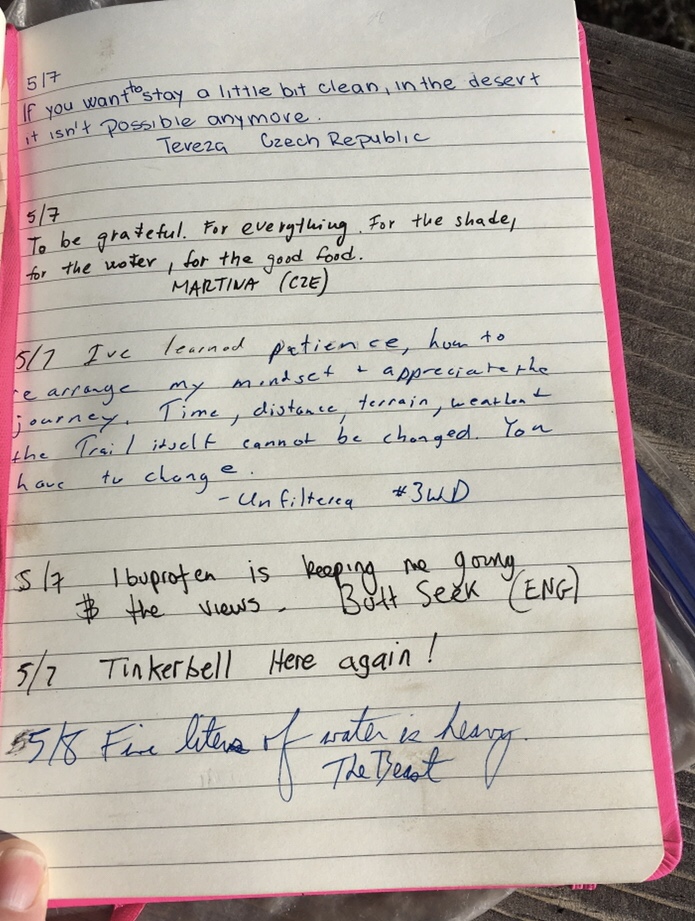 5/7
If you want to stay a little bit clean, in the desert
it isn't possible anymore.
Tereza Czech Republic
5/7
To be grateful. For everything. For the shade,
for the water, for the good food.
MARTINA (CZE)
5/7 Ive learned patience, how to
re arrange my mindset + appreciate the
journey. Time, distance, terrain, weather +
the Trail itself cannot be changed. You
have to change.
- Unfiltered #3WD
5/7 Ibuprofen is keeping me going
& the views. Butt Seek (ENG)
5/7 Tinkerbell Here again!
5/8 Five liters of water is heavy.
The Beast